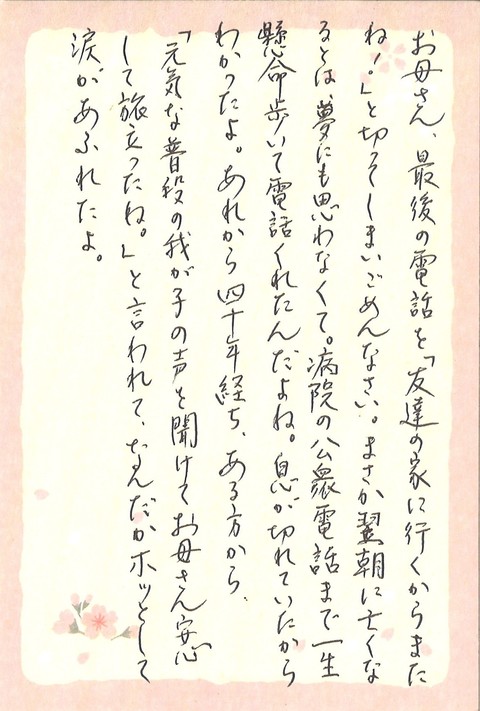 お母さん、最後の電話を「友達の家に行くからまた
ね！。」と切ってしまいごめんなさい。まさか翌朝に亡くな
るとは、夢にも思わなくて。病院の公衆電話まで一生
懸命歩いて電話くれたんだよね。息が切れていたから
わかったよ。あれから四十年経ち、ある方から、
「元気な普段の我が子の声を聞けてお母さん安心
して旅立ったね。」と言われて、なんだかホッとして
涙があふれたよ。